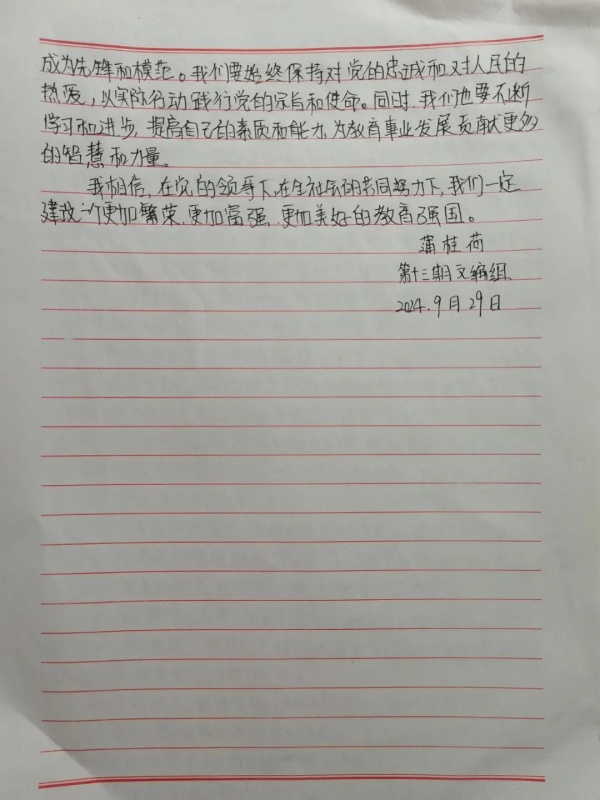 成为先锋和模范。我们要始终保持对党的忠诚和对人民的
热爱，以实际行动践行党的宗旨和使命。同时，我们也要不断
学习和进步，提高自己的素质和能力，为教育事业发展贡献更多
的智慧和力量。
我相信，在党的领导下，在全社会的共同努力下，我们一定
建设一个更加繁荣、更加富强、更加美好的教育强国。
蒲桂荷
第十三期文编组
2024.9月29日